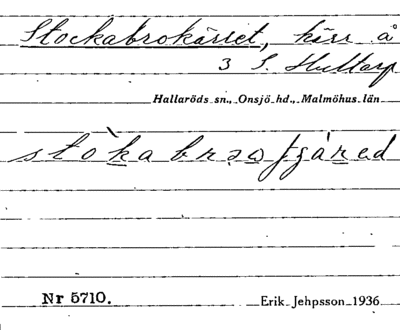 Stockabrokärret, kärr å
3 S. Hultarp
Hallaröds sn., Onsjö hd., Malmöhus län
Nr 5710. Erik Jehpsson 1936.